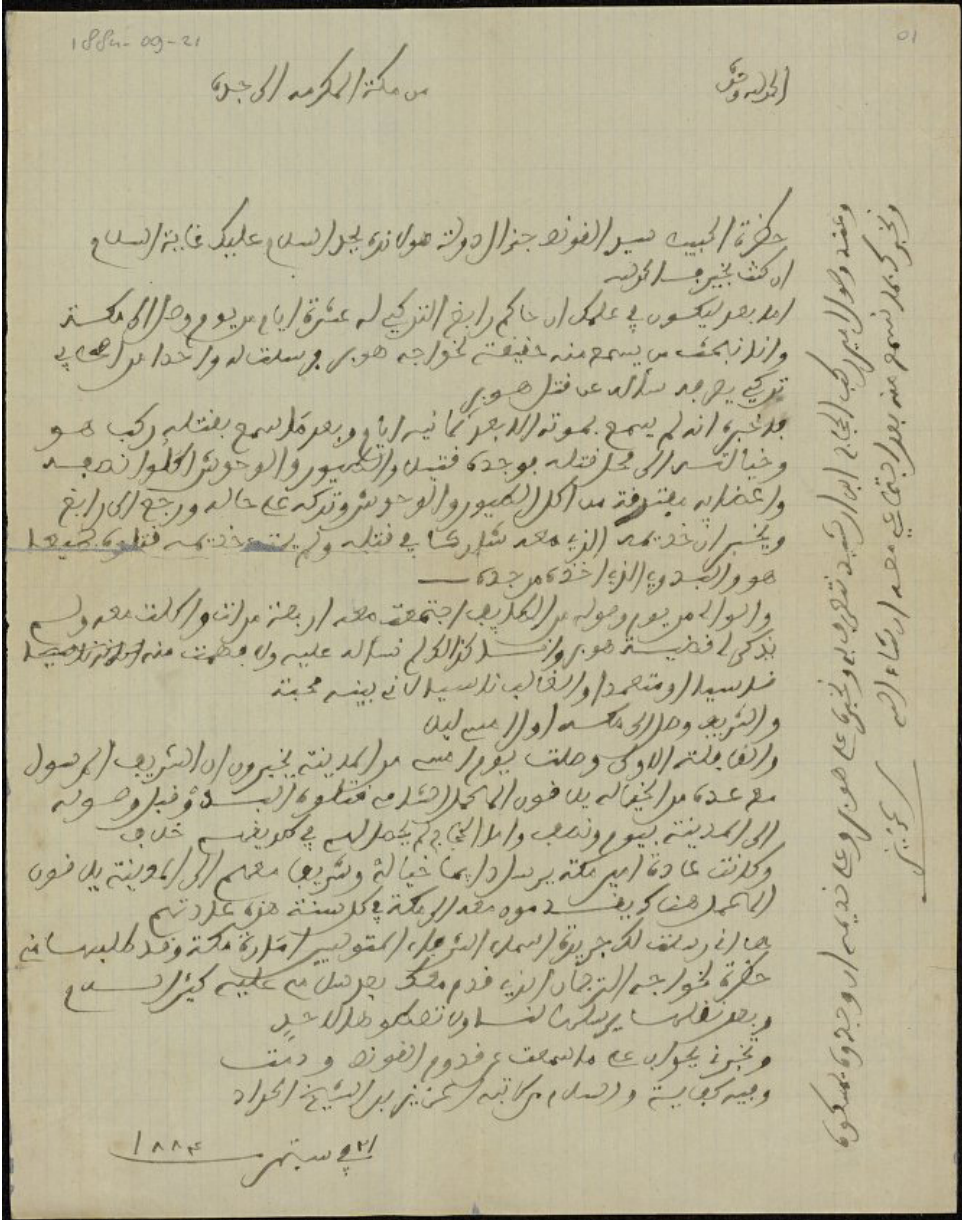 1884-09-21
01
الحمد لله وحده
من مكة المكرمه الى جدة
حضرة الحبيب سيد القونصو جنرال دولة هولانده بجده السلام عليك غاية السلام
ان كنت بخير فالحمد لله
اما بعد ليكون في علمك ان حاكم رابغ التركي له عشرة ايام من يوم وصل الى مكة
وانا نبحث من يسمع منه حقيقة الخواجه هوبر ورسلت له واحدا من
تركي يعرفه سأله عن قتل هوبر
فاخبره انه لم يسمع بموته الا بعد ثمانية ايام وبعد ما سمع بقتله ركب هو
وخيالته الى محل قتله فوجده قتيل والطيور والوحوش اكلوا نصفه
واعضائه مفترقة من اكل الطيور والوحوش وتركه على حاله ورجع الى رابغ
ويخبر ان خديمه الذي معه شاركها في قتله ولم خديمه قتلوه جميعا
هو والبدوي الذي اخذه من جدة
والوالي من يوم وصوله من الطايف اجتمعت معه اربعة مرات واكلت معه ولم
يذكر لي قضية هوبر وانا كذالك لم نسأله عليه ولا فهمت منه
ناسيا او متعمدا والغالب ناسيا لاني بينه محبة
والشريف وصل الى مكة اول امس ليلا
والقافلة الاولى وصلت يوم امس من المدينة يخبرون ان الشريف المرسول
مع عدة من الخيالة يلاقون المحمل الشامي قتلوه البدو قبل وصوله
الى المدينة بيوم ونصف واما الحجاج لم يحصل لهم في طريقهم خلاف
وكانت عادة امير مكة يرسل دايما خيالة وشريفا معهم الى المدينة يلاقون
المحمل هناك يقدموه معه الى مكة في كل سنة هذه عادتهم
ها اني رسلت لك جريدة اسماء الشرفاء المتوليين امارة مكة وقد طلبها مني
حضرة الخواجه الترجمان الذي قدم معك بعد سلامي عليه كثير السلام
وبعد نقلها يرسلها لنا ولا تعطوها لاحد
وتخبرني بجواب على ما سمعت عن قدوم القونصو ودمت
وفيه كفاية والسلام من كاتبه عزيز بن الشيخ الحداد
٢١ في سبتمبر ١٨٨٤
وعند وصول امير ركب الحجاج ابن الرشيد نتعرف به ونخبره على هوبر وعلى خديمه ان وجدوه يمسكوه
ونخبرك بما نسمع منه بعد اجتماعي معه ان شاء الله
عزيز